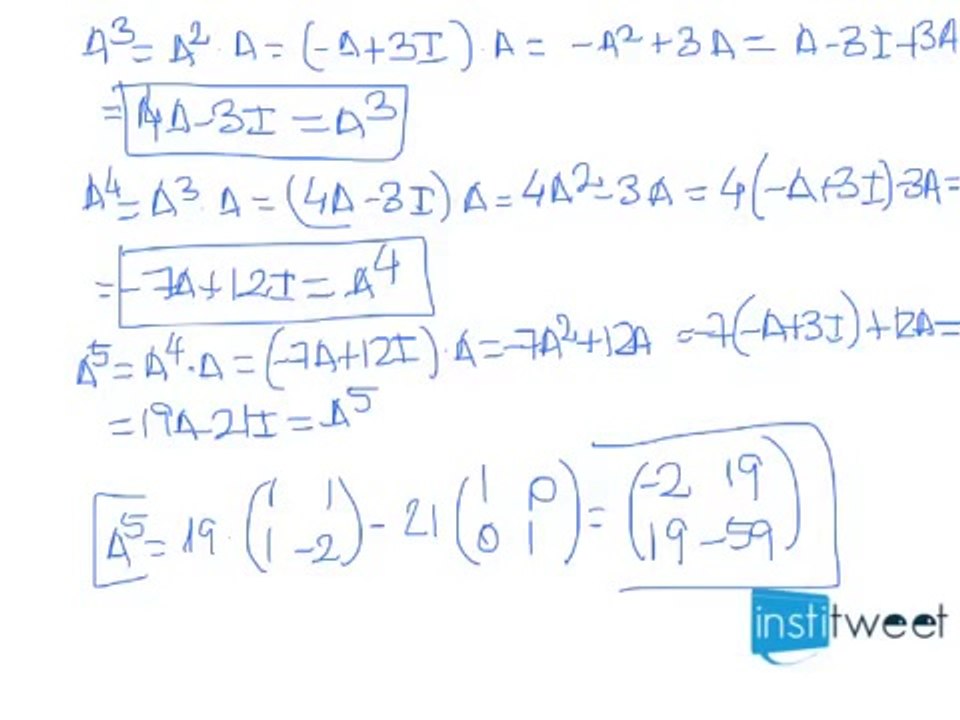 A³ = A² · A = (-A+3I) · A = -A² + 3A = A-3I+3A
= 4A-3I = A³
A⁴ = A³ · A = (4A-3I) A = 4A² - 3A = 4(-A+3I)-3A =
= -7A+12I = A⁴
A⁵ = A⁴ · A = (-7A+12I) · A = -7A²+12A = -7(-A+3I)+12A =
= 19A-21I = A⁵
A⁵ = 19 · (1 1; 1 -2) - 21 (1 0; 0 1) = (-2 19; 19 -59)
institweet